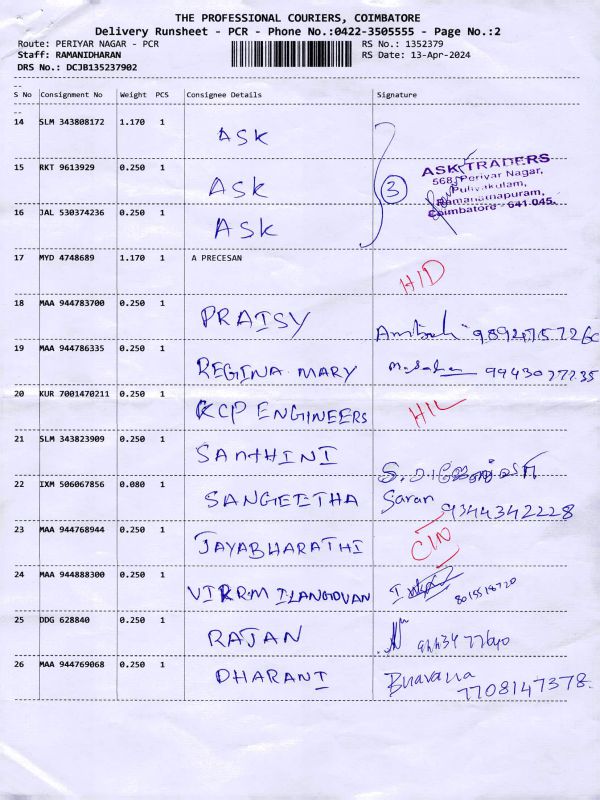 THE PROFESSIONAL COURIERS, COIMBATORE
Delivery Runsheet - PCR - Phone No.:0422-3505555 - Page No.:2
Route: PERIYAR NAGAR - PCR RS No.: 1352379
Staff: RAMANIDHARAN RS Date: 13-Apr-2024
DRS No.: DCJB135237902
S No Consignment No Weight PCS Consignee Details Signature
14 SLM 343808172 1.170 1 ASK
15 RKT 9613929 0.250 1 ASK
16 JAL 530374236 0.250 1 ASK
3
ASK TRADERS
568, Periyar Nagar,
Puliyakulam,
Ramanathapuram,
Coimbatore - 641 045.
17 MYD 4748689 1.170 1 A PRECESAN HID
18 MAA 944783700 0.250 1 PRAISY
19 MAA 944786335 0.250 1 REGINA MARY 9943077235
20 KUR 7001470211 0.250 1 KCP ENGINEERS
21 SLM 343823909 0.250 1 SANTHINI
22 IXM 506067856 0.080 1 SANGEETHA Saran 9344342228
23 MAA 944768944 0.250 1 JAYABHARATHI
24 MAA 944888300 0.250 1 VIKRM ILANGOVAN
25 DDG 628840 0.250 1 RAJAN
26 MAA 944769068 0.250 1 DHARANI Bhavana 7708147378